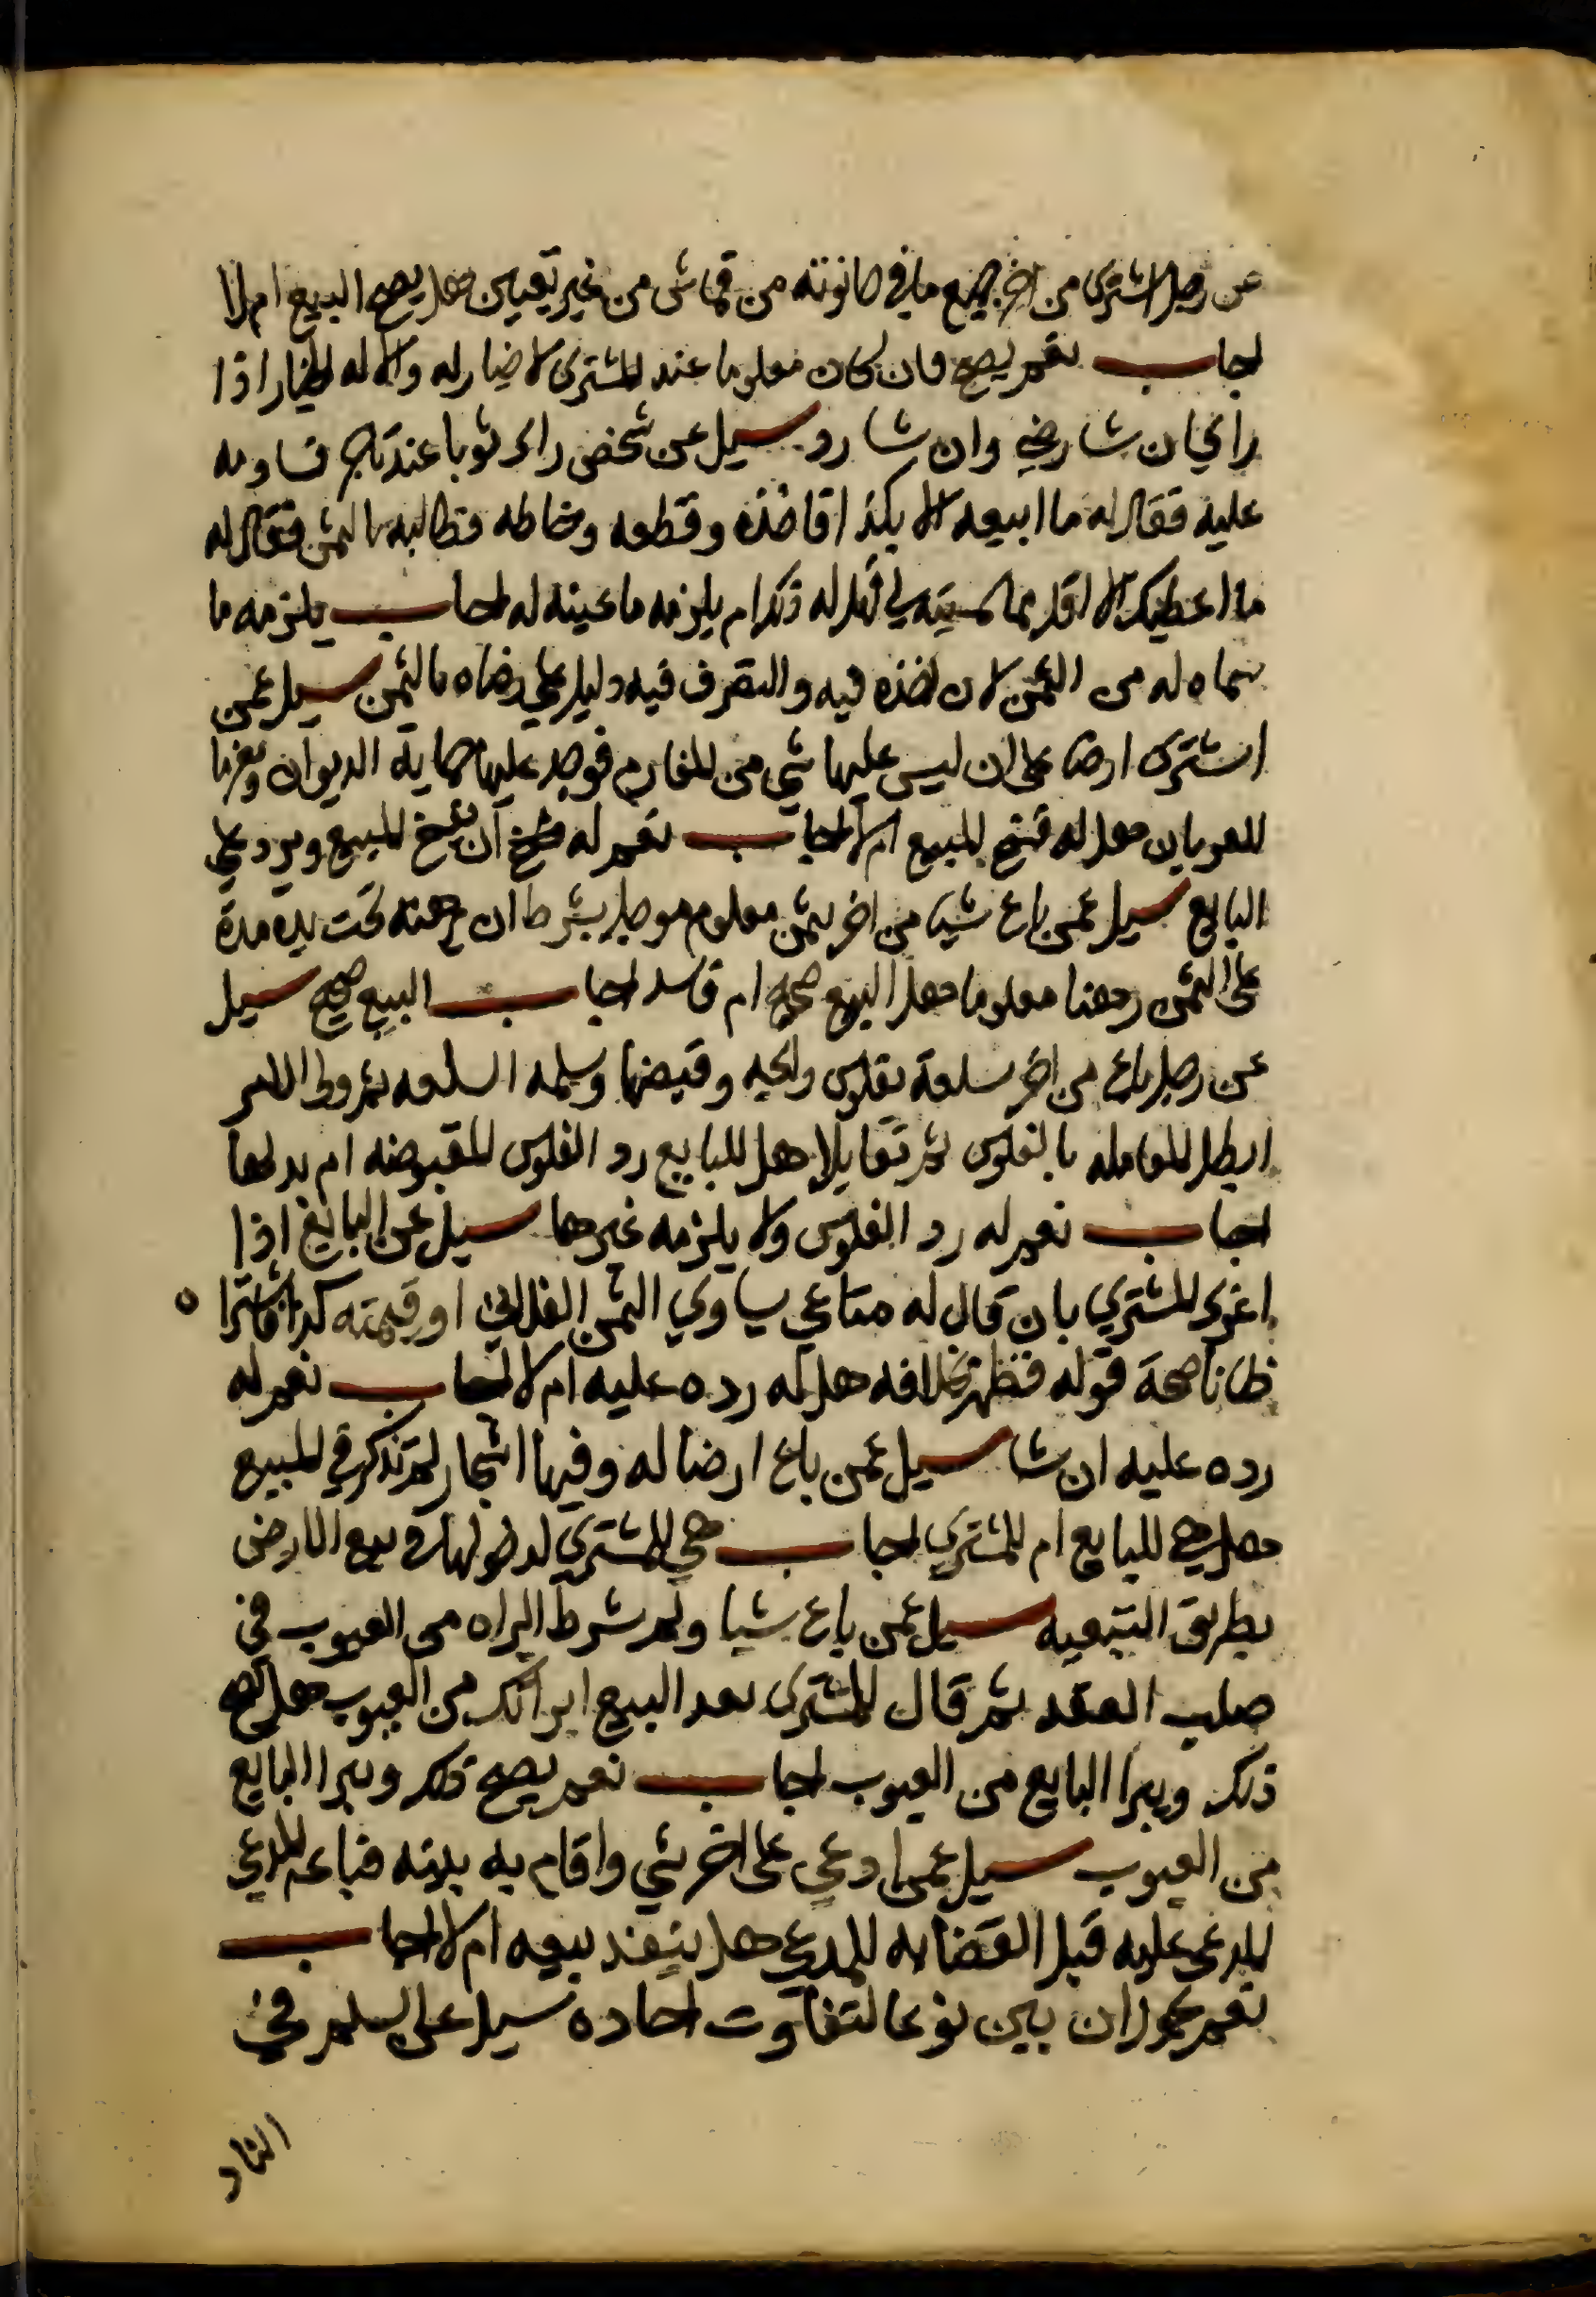 عن رجل اشترى من اخر جميع ما في حانوته من قماش من غير تعيين هل يصح البيع ام لا
اجاب نعم يصح فان كان معلوما عند المشترى لا خيار له والا له الخيار اذا
راى ان شا رضي وان شا رد سيل عن شخص راى ثوبا عند تاجر فساومه
عليه فقال له ما ابيعه الا بكذا فاخذه وقطعه وخاطه فطالبه بالثمن فقال له
ما اعطيك الا اقل مما سميته لي فهل له ذلك ام يلزمه ما عينه له اجاب يلزمه ما
سماه له من الثمن لان اخذه فيه والتصرف فيه دليل على رضاه بالثمن سيل عمن
اشترى ارضا على ان ليس عليها شي من المغارم فوجد عليها حماية الديوان ومغرما
للعربان هل له فسخ المبيع ام لا اجاب نعم له ان يفسخ المبيع ويرد على
البايع سيل عمن باع شيا من اخر بثمن معلوم موجل بشرط ان يرهنه تحت يده مدة
على الثمن رهنا معلوما هل البيع صحيح ام فاسد اجاب البيع صحيح سيل
عن رجل باع من اخر سلعة بفلوس رايجه وقبضها وسلمه السلعه ثم ولي الامر
ابطل المعامله بالفلوس ثم تقايلا هل للبايع رد الفلوس المقبوضه ام بدلها
اجاب نعم له رد الفلوس ولا يلزمه غيرها سيل عن البايع اذا
اغرى المشتري بان قال له متاعي يساوي الثمن الفلاني او قيمته كذا فاشترا
ظانا صحة قوله فظهر بخلافه هل له رده عليه ام لا اجاب نعم له
رده عليه ان شا سيل عمن باع ارضا له وفيها اشجار لم تذكر في المبيع
هل هي للبايع ام للمشتري اجاب هي للمشتري لدخولها في بيع الارض
بطريق التبعيه سيل عمن باع شيا ولم شرط البراه من العيوب في
صلب العقد ثم قال المشترى بعد البيع ابراتك من العيوب هل يصح
ذلك ويبرا البايع من العيوب اجاب نعم يصح ذلك ويبرا البايع
من العيوب سيل عمن ادعي على اخر بشي واقام به بينه فباعه المدعي
للمدعى عليه قبل القضا به للمدعي هل ينفذ بيعه ام لا اجاب
نعم يجوز ان بين نوعا لتفاوت احاده سيل على السلم في